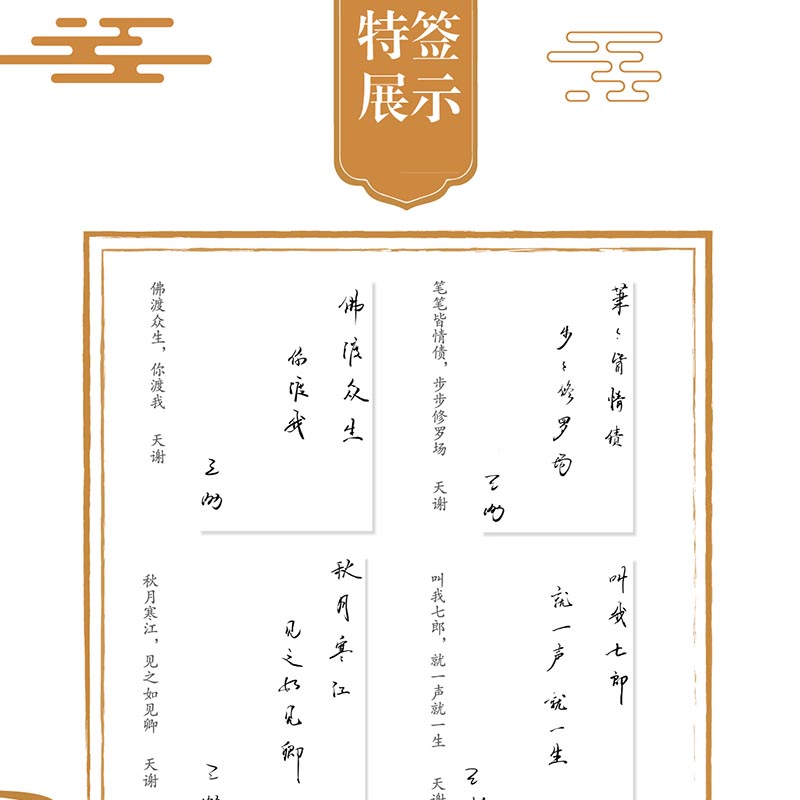 特签
展示
筆〻皆情债
步〻修罗场
笔笔皆情债，步步修罗场 天谢
佛渡众生
你渡我
佛渡众生，你渡我 天谢
叫我七郎
就一声就一生
叫我七郎，就一声就一生 天谢
秋月寒江
见之如见卿
秋月寒江，见之如见卿 天谢